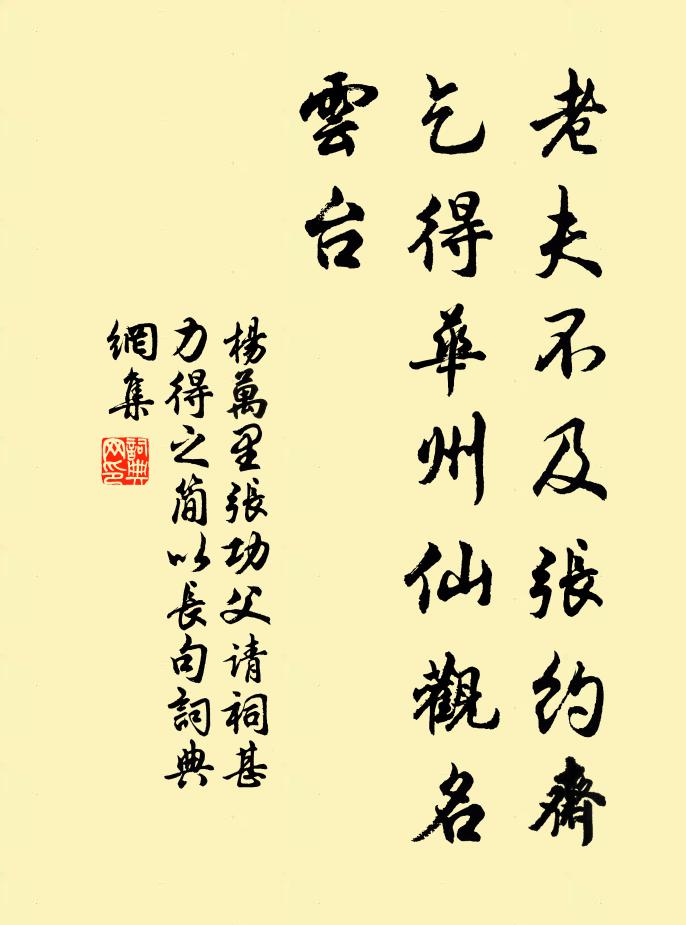 老夫不及張約齋
乞得華州仙觀名
雲台
楊萬里張功父请祠甚
力得之简以長句詞典
網集
詞典
网印